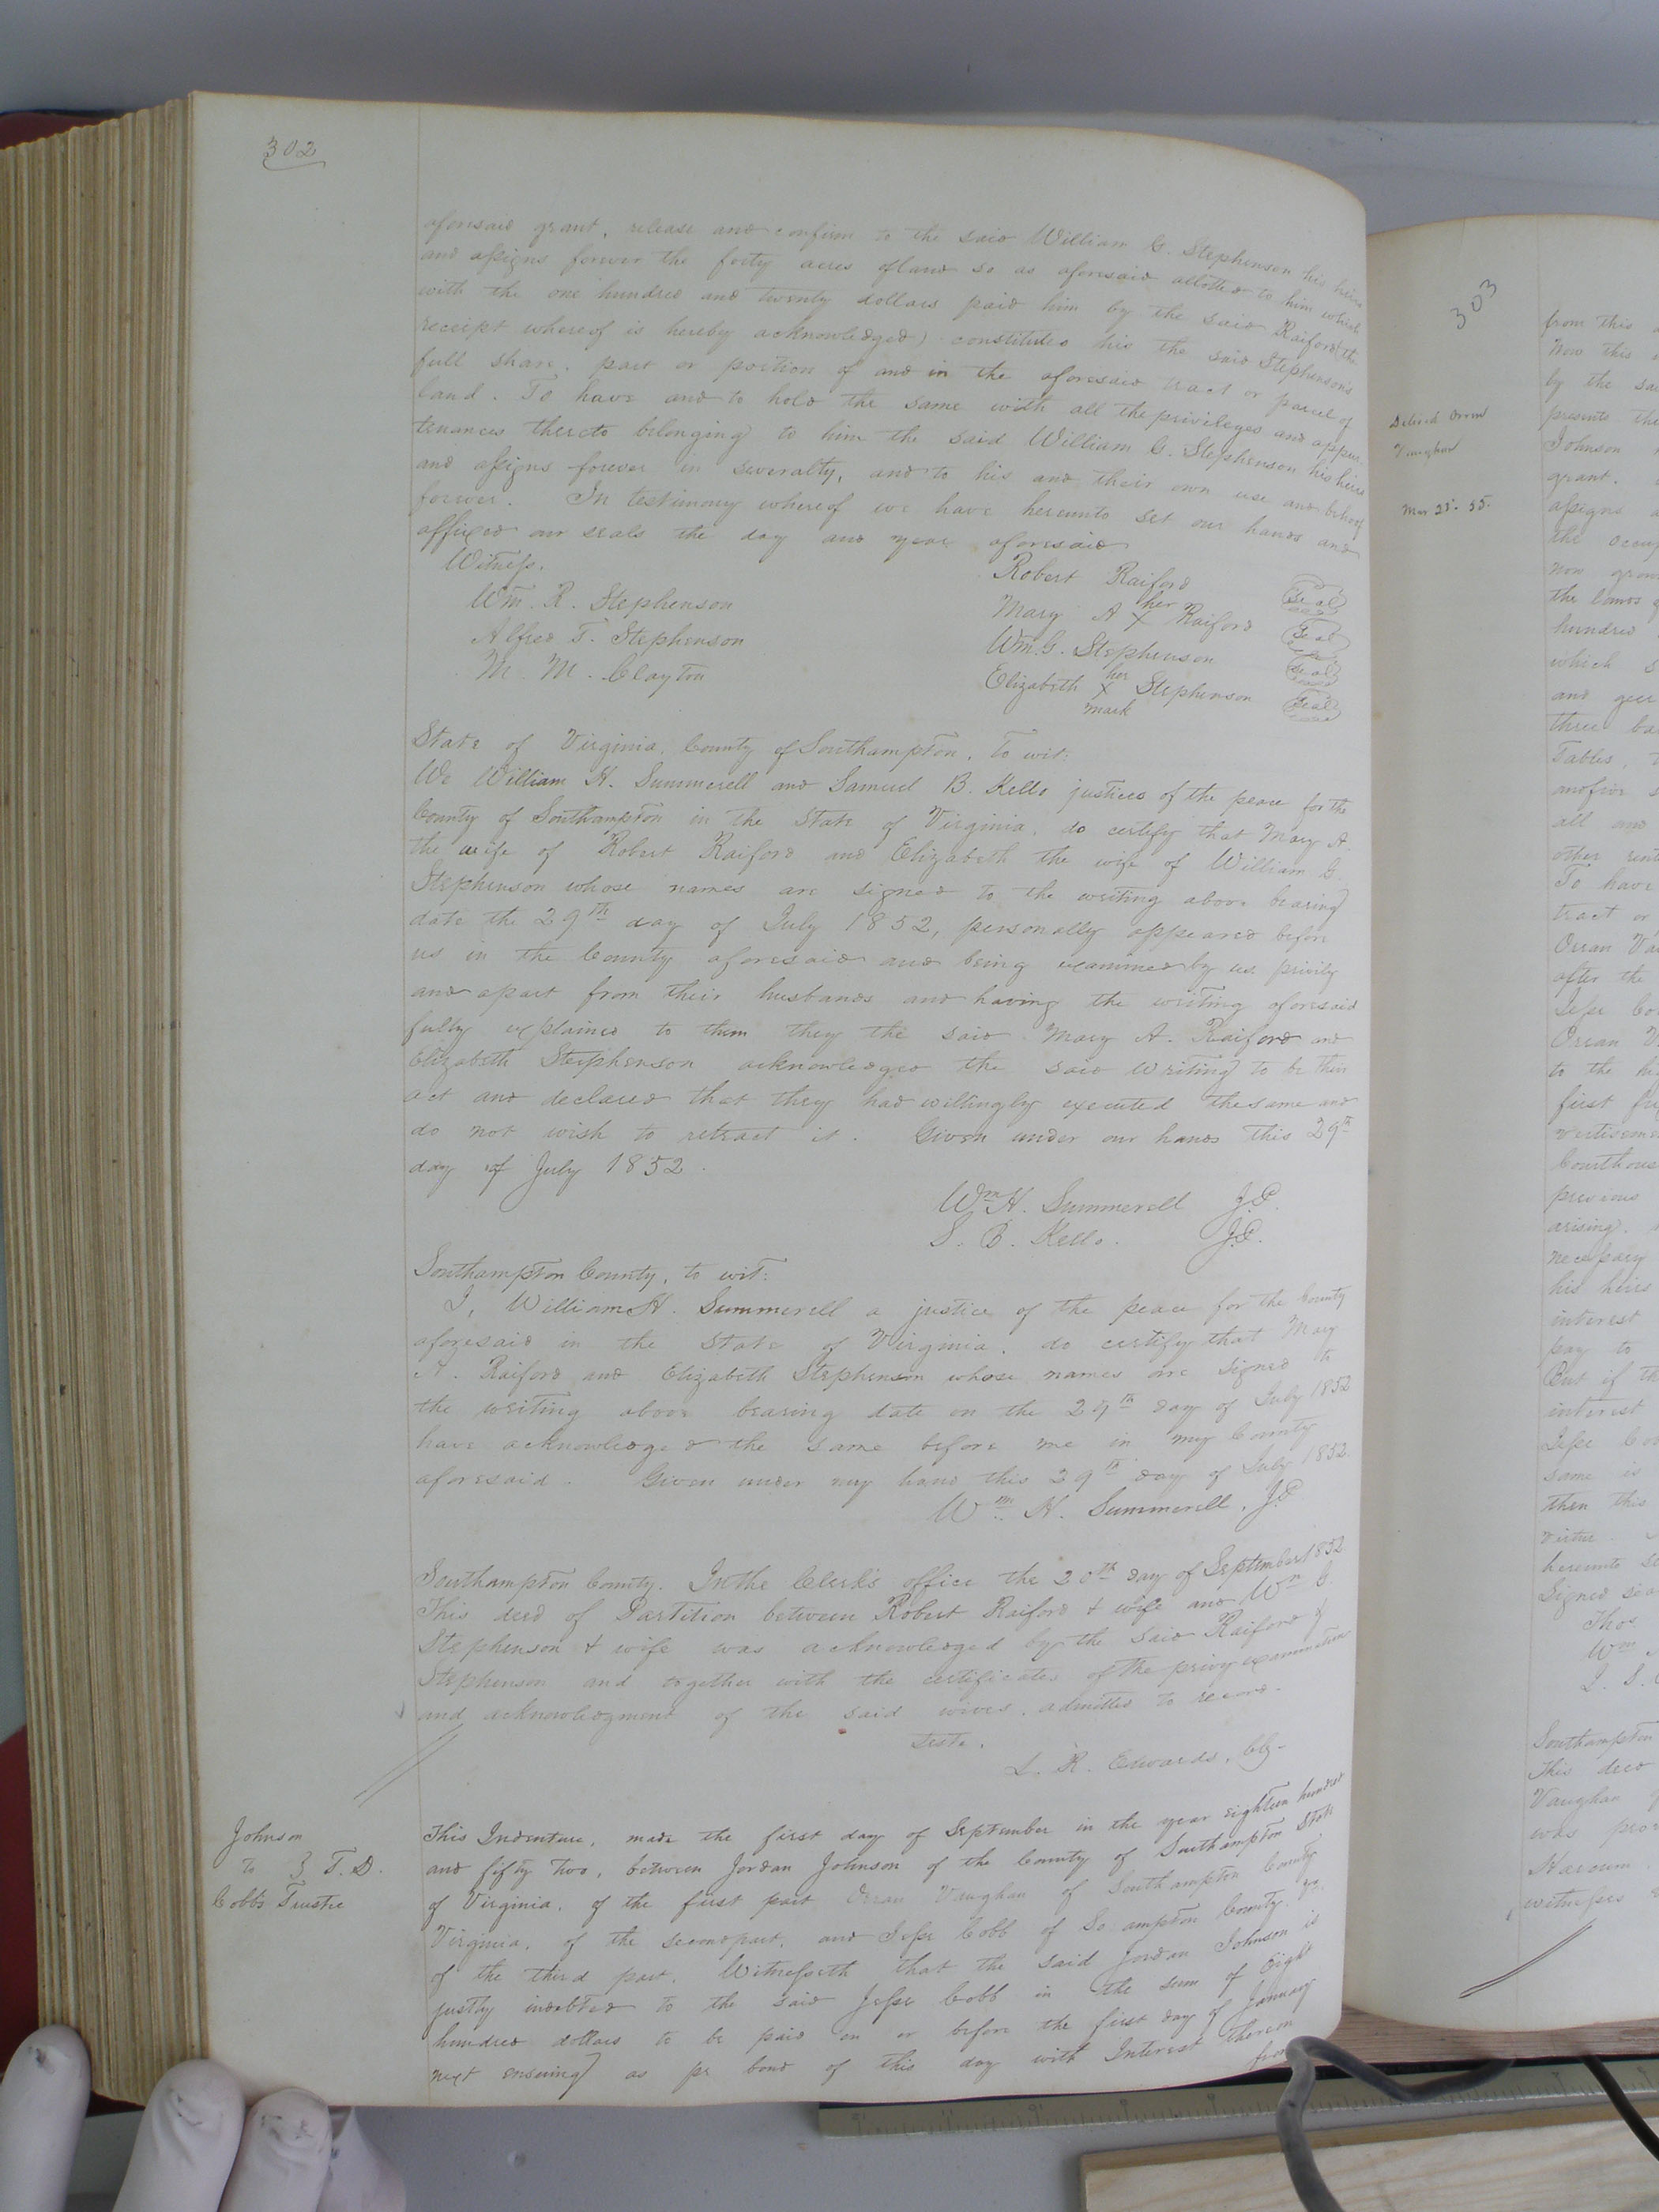 302
aforesaid grant, release and confirm to the said William G. Stephenson his heirs
and assigns forever the forty acres of land so as aforesaid allotted to him which
with the one hundred and twenty dollars paid him by the said Raiford (the
receipt whereof is hereby acknowledged) constitutes his the said Stephenson's
full share, part or portion of and in the aforesaid tract or parcel of
land. To have and to hold the same with all the privileges and appur-
tenances thereto belonging to him the said William G. Stephenson his heirs
and assigns forever in severalty, and to his and their own use and behoof
forever. In testimony whereof we have hereunto set our hands and
affixed our seals the day and year aforesaid
Witness.
Wm. R. Stephenson
Alfred T. Stephenson
M. M. Clayton
Robert Raiford Seal
her
Mary A X Raiford Seal
Wm. G. Stephenson Seal
her
Elizabeth X Stephenson Seal
mark
State of Virginia, County of Southampton, to wit:
We William H. Summerell and Samuel B. Kello justices of the peace for the
County of Southampton in the State of Virginia, do certify that Mary A.
the wife of Robert Raiford and Elizabeth the wife of William G.
Stephenson whose names are signed to the writing above bearing
date the 29th day of July 1852, personally appeared before
us in the County aforesaid and being examined by us privily
and apart from their husbands and having the writing aforesaid
fully explained to them they the said Mary A. Raiford and
Elizabeth Stephenson acknowledged the said writing to be their
act and declared that they had willingly executed the same and
do not wish to retract it. Given under our hands this 29th
day of July 1852.
Wm H. Summerell J.P.
S. B. Kello. J.P.
Southampton County, to wit:
I, William H. Summerell a justice of the peace for the County
aforesaid in the State of Virginia, do certify that Mary
A. Raiford and Elizabeth Stephenson whose names are signed to
the writing above bearing date on the 29th day of July 1852
have acknowledged the same before me in my County
aforesaid. Given under my hand this 29th day of July 1852.
Wm H. Summerell, J.P.
Southampton County. In the Clerk's office the 20th day of September 1852.
This deed of Partition between Robert Raiford & wife and Wm G.
Stephenson & wife was acknowledged by the said Raiford &
Stephenson and together with the certificates of the privy examination
and acknowledgment of the said wives, admitted to record.
Teste.
L. R. Edwards, Clk.
Johnson
to } T. D.
Cobbs Trustee
This Indenture, made the first day of September in the year eighteen hundred
and fifty two, between Jordan Johnson of the County of Southampton State
of Virginia, of the first part Orran Vaughan of Southampton County
Virginia, of the second part, and Jesse Cobb of So ampton County Va.
of the third part. Witnesseth that the said Jordan Johnson is
justly indebted to the said Jesse Cobb in the sum of Eight
hundred dollars to be paid on or before the first day of January
next ensuing as pr bond of this day with Interest thereon
from
303
Delivd Orran
Vaughan
Mar 25. 55.
from this
Now this
by the
presents the
Johnson
grant.
assigns
the
now
the lands
hundred
which
and
three
Tables,
and five
all and
other
To have
tract or
Orran
after the
Jesse
Orran
to the
first

previous
arising.
necessary
his heirs
interest
pay to
But if
interest
Jesse
same is
then this
virtue.
hereunto
Signed
Thos
Wm
Southampton
This deed
Vaughan
was

witnesses